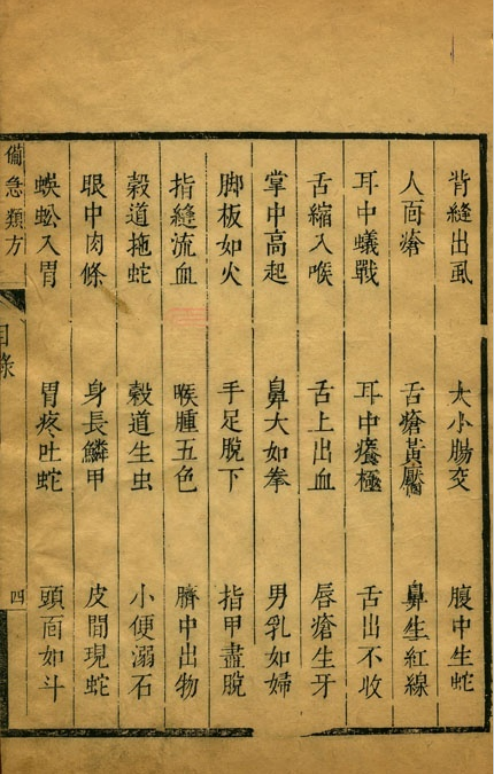 背縫出虱　大小腸交　腹中生蛇
人面瘡　舌瘡黃靨　鼻生紅線
耳中蟻戰　耳中癢極　舌出不收
舌縮入喉　舌上出血　唇瘡生牙
掌中高起　鼻大如拳　男乳如婦
脚板如火　手足脫下　指甲盡脫
指縫流血　喉腫五色　臍中出物
穀道拖蛇　穀道生虫　小便溺石
眼中肉條　身長鱗甲　皮間現蛇
蜈蚣入胃　胃疼吐蛇　頭面如斗
備急類方　目錄　四